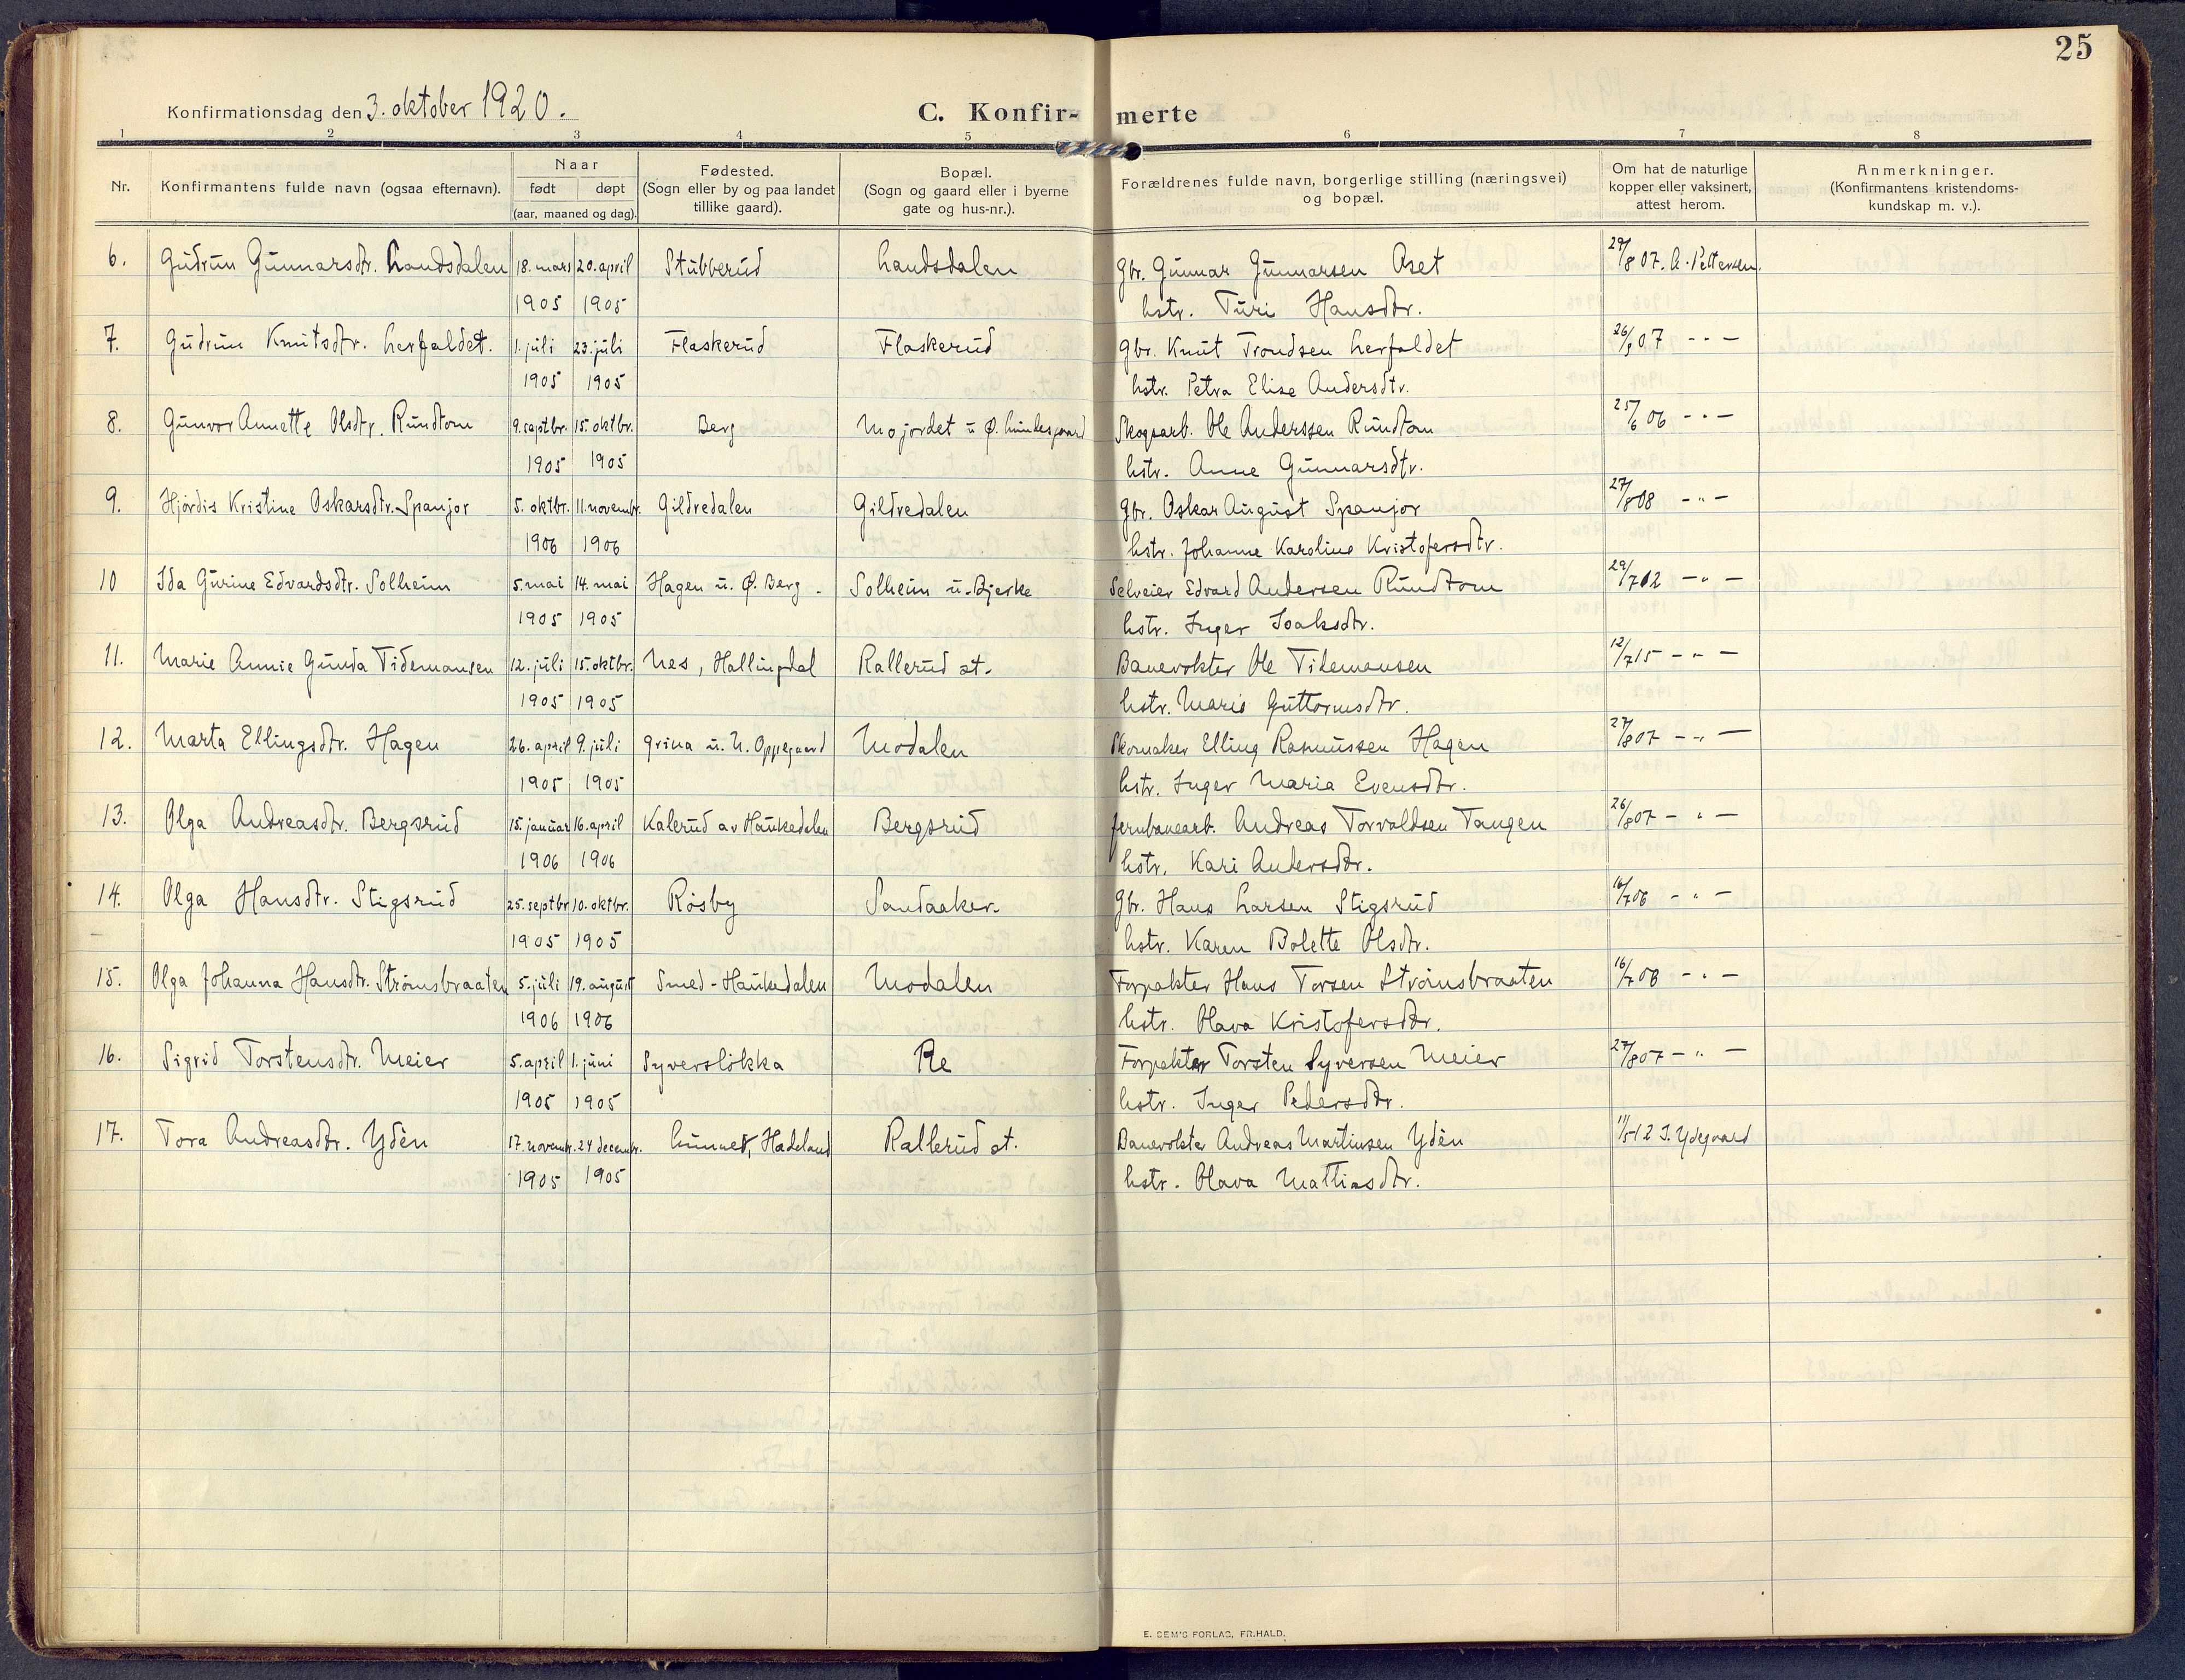 25
Konfirmationsdag den 3. oktober 1920.
C. Konfir-merte
1 2 3 4 5 6 7 8
Nr. Konfirmantens fulde navn (ogsaa efternavn). Naar født døpt (aar, maaned og dag). Fødested. (Sogn eller by og paa landet tillike gaard). Bopæl. (Sogn og gaard eller i byerne gate og hus-nr.). Forældrenes fulde navn, borgerlige stilling (næringsvei) og bopæl. Om hat de naturlige kopper eller vaksinert, attest herom. Anmerkninger. (Konfirmantens kristendoms-kundskap m. v.).
6. Gudrun Gunnarsdtr. Landsdalen 18. mars 20. april Stubberud Landsdalen Gbr. Gunnar Gunnarsen Aset 29/8 07. A. Pettersen.
1905 1905 hstr. Turi Hansdtr.
7. Gudrun Knutsdtr. Lerfaldet. 1. juli 23. juli Flaskerud Flaskerud Gbr. Knut Trondsen Lerfaldet 26/8 07 - " -
1905 1905 hstr. Petra Elise Andersdtr.
8. Gunvor Annette Olsdtr. Rundtom 9. septbr. 15. oktbr. Berg Mojordet u. Ø. Lundesgaard Skogsarb. Ole Anderssen Rundtom 25/6 06 - " -
1905 1905 hstr. Anne Gunnarsdtr.
9. Hjørdis Kristine Oskarsdtr. Spanjor 5. oktbr. 11. novembr. Gildredalen Gildredalen Gbr. Oskar August Spanjor 27/8 08 - " -
1906 1906 hstr. Johanne Karoline Kristofersdtr.
10 Ida Gurine Edvardsdtr. Solheim 5. mai 14. mai Hagen u. Ø. Berg. Solheim u. Bjerke Selveier Edvard Andersen Rundtom 29/7 12 - " -
1905 1905 hstr. Inger Isaksdtr.
11. Marie Annie Gunda Tidemansen 12. juli 15. oktbr. Nes, Hallingdal Rallerud st. Banevokter Ole Tidemansen 12/7 15 - " -
1905 1905 hstr. Marie Guttormsdtr.
12. Marta Ellingsdtr. Hagen 26. april 9. juli Grina u. N. Oppegaard Modalen Skomaker Elling Rasmussen Hagen 27/8 07 - " -
1905 1905 hstr. Inger Maria Evensdtr.
13. Olga Andreasdtr. Bergsrud 15. januar 16. april Kalerud av Haukedalen Bergsrud Jernbanearb. Andreas Torvaldsen Tangen 26/8 07 - " -
1906 1906 hstr. Kari Andersdtr.
14. Olga Hansdtr. Stigsrud 25. septbr. 10. oktbr. Røsby Sandaaker. Gbr. Hans Larsen Stigsrud 16/7 06 - " -
1905 1905 hstr. Karen Bolette Olsdtr.
15. Olga Johanna Hansdtr. Strømsbraaten 5. juli 19. august Smed-Haukedalen Modalen Forpakter Hans Torsen Strømsbraaten 16/7 08 - " -
1906 1906 hstr. Olava Kristofersdtr.
16. Sigrid Torstensdtr. Meier 5. april 1. juni Syversløkka Re Forpakter Torsten Syversen Meier 27/8 07 - " -
1905 1905 hstr. Inger Pedersdtr.
17. Tora Andreasdtr. Ydèn 17. novembr. 24 decembr. Lunner, Hadeland Rallerud st. Banevokter Andreas Martinsen Ydèn 11/5 12 J. Ydegaard
1905 1905 hstr. Olava Mattiasdtr.
E. SEM'S FORLAG, FR.HALD.